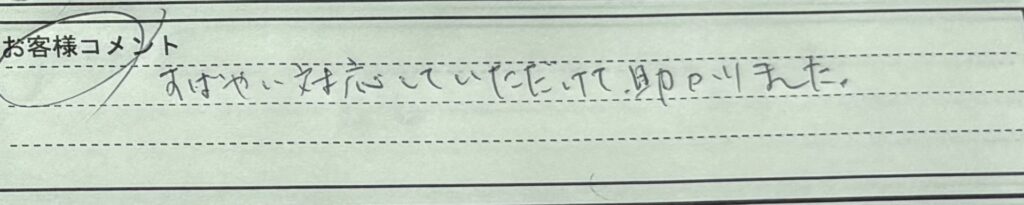 お客様コメント
すばやい対応していただけて、助かりました。